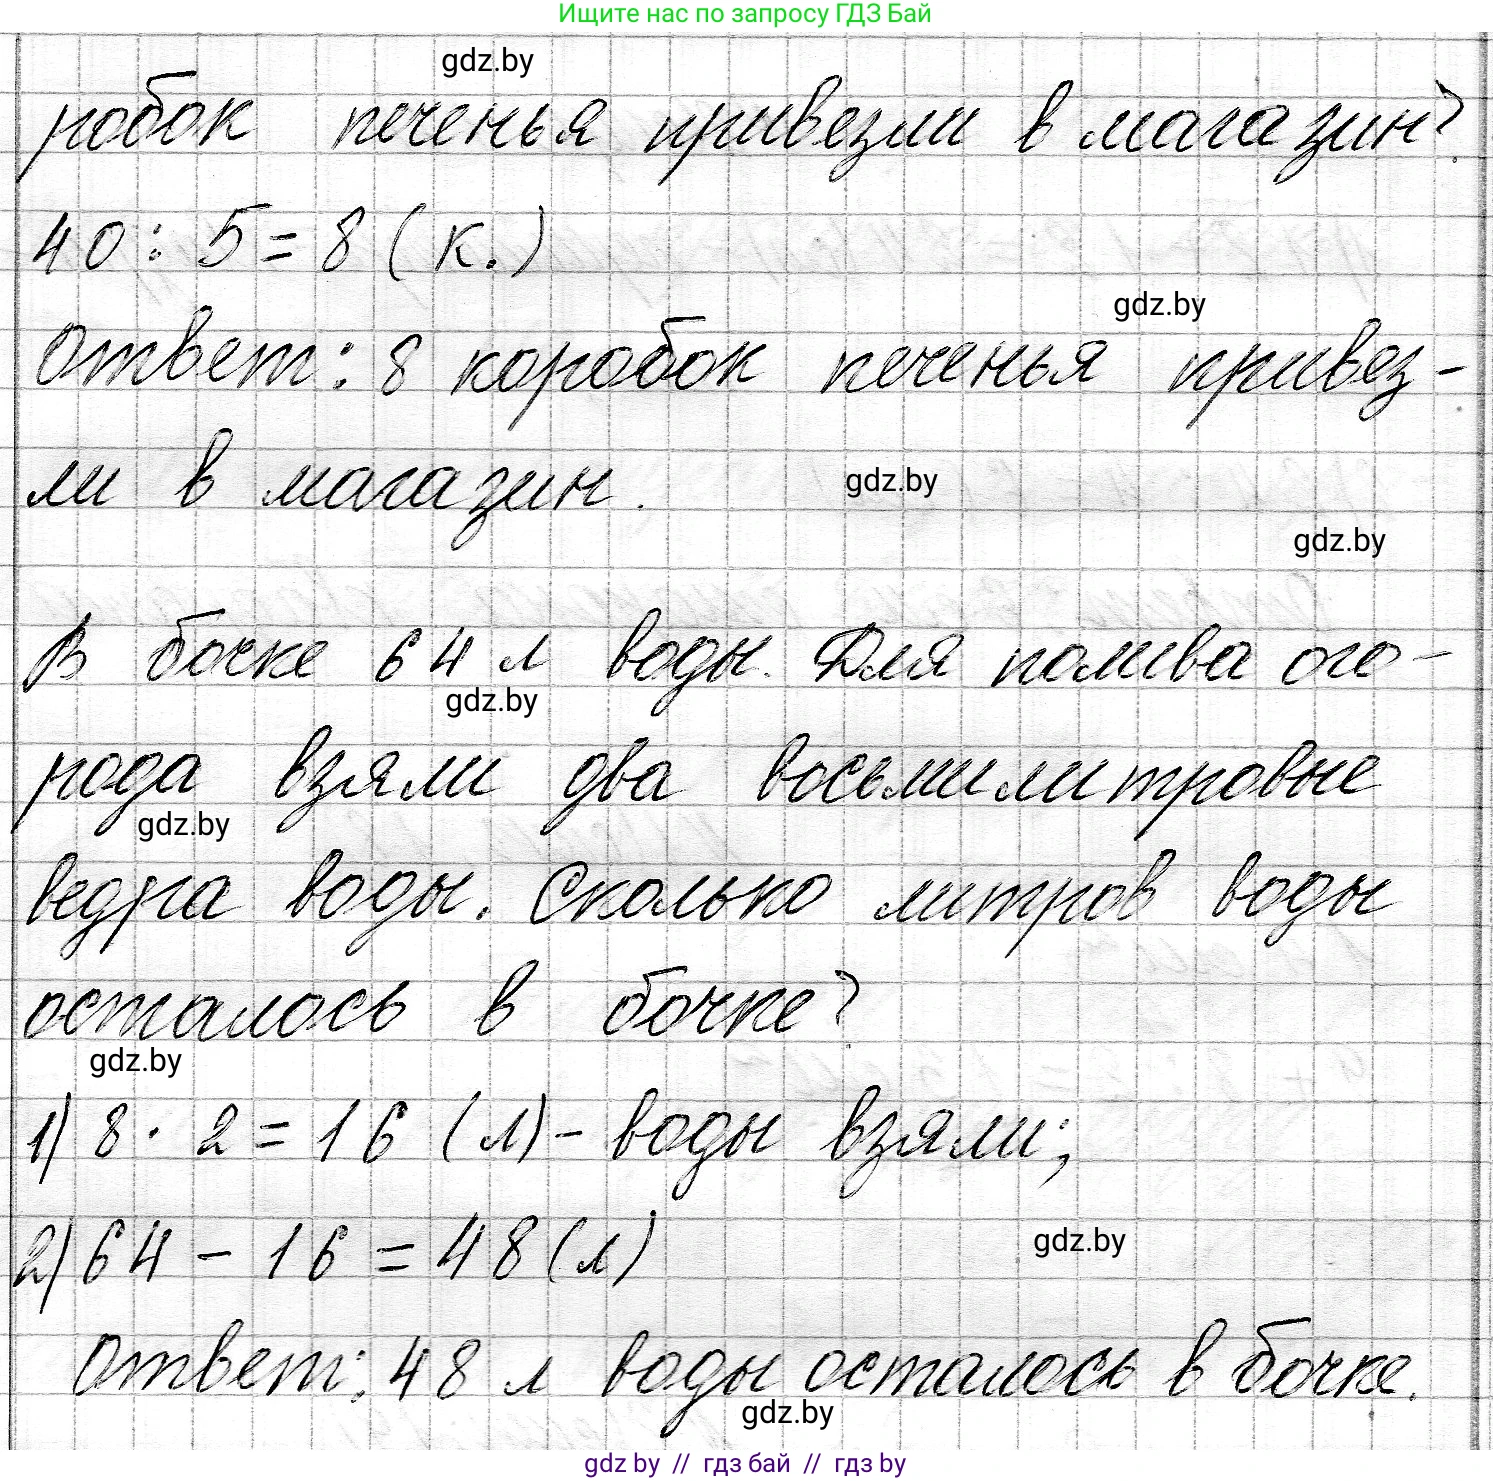 Ищите нас по запросу ГДЗ Бай
gdz.by
робок печенья привезли в магазин?
40 : 5 = 8 (к.)
gdz.by
Ответ: 8 коробок печенья привез-
ли в магазин.
gdz.by
gdz.by
В бочке 64 л воды. Для полива ого-
gdz.by
рода взяли два восьмилитровые
gdz.by
ведра воды. Сколько литров воды
осталось в бочке?
gdz.by
1) 8 · 2 = 16 (л) - воды взяли;
2) 64 - 16 = 48 (л)
gdz.by
Ответ: 48 л воды осталось в бочке.
gdz.by
gdz.by // гдз бай // гдз by